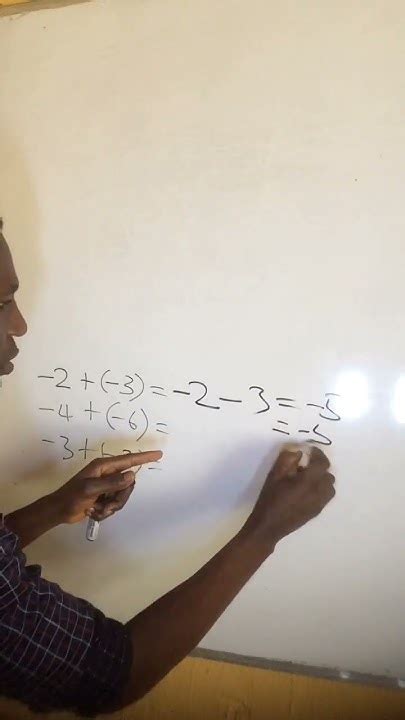 -2 + (-3) = -2 - 3 = -5
-4 + (-6) = = -5
-3 + (
=